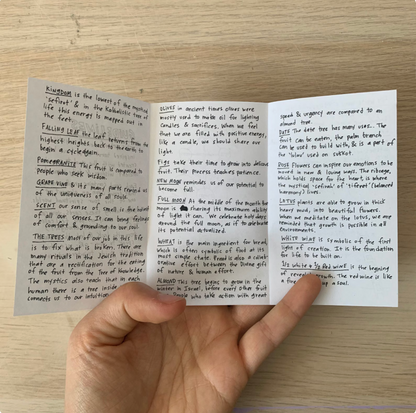 KINGDOM is the lowest of the mystical
"sefirot" & in the Kabbalistic tree of
life this energy is mapped out in
the feet.
FALLING LEAF the leaf returns from the
highest heights back to the earth to
begin a cycle again.
POMEGRANATE This fruit is compared to
people who seek wisdom.
GRAPE VINE & it's many parts remind us
of the universeness of all souls.
SCENT Our sense of smell is the holiest
of all our senses. It can bring feelings
of comfort & grounding to our soul.
THE TREES Part of our job in this life
is to fix what is broken. There are
many rituals in the Jewish tradition
that are a rectification for the eating
of the fruit from the Tree of Knowledge.
The mystics also teach that in each
human there is a tree inside
connects us to our intuition
OLIVES in ancient times olives were
mostly used to make oil for lighting
candles & sacrifices. When we feel
that we are filled with positive energy,
like a candle, we should share our
light.
Figs take their time to grow into delicious
fruit. Their process teaches patience.
NEW MOON reminds us of our potential to
become full.
FULL MOON At the middle of the month the
moon is sharing its maximum ability
of light it can. We celebrate holidays
around the full moon, as if to celebrate
its potential actualized.
WHEAT is the main ingredient for bread,
which is often symbolic of food at its
most simple state. Bread is also a collab
creative effort between the Divine gift
of nature & human effort.
ALMOND This tree begins to grow in the
winter in Israel, before every other fruit
People who take action with great
speed & urgency are compared to an
almond tree.
DATE The date tree has many uses... The
fruit can be eaten, the palm branch
can be used to build with, & is a part
of the "lulav" used on sukkot.
ROSE Flowers can inspire our emotions to be
moved in new & loving ways. The ribcage,
which holds space for the heart, is where
the mystical "sefirah" of "tiferet" (balanced
harmony) lives.
LOTUS plants are able to grow in thick
heavy mud, into beautiful flowers.
When we meditate on the lotus, we are
reminded that growth is possible in all
environments.
WHITE WINE is symbolic of the first
light of creation. It is the foundation
for life to be built on.
1/2 WHITE & 1/2 RED WINE is the beginning
of growth. The red wine is like
a soul.